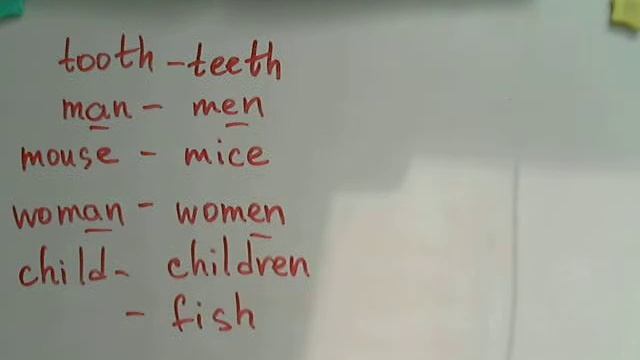 tooth - teeth
man - men
mouse - mice
woman - women
child - children
- fish